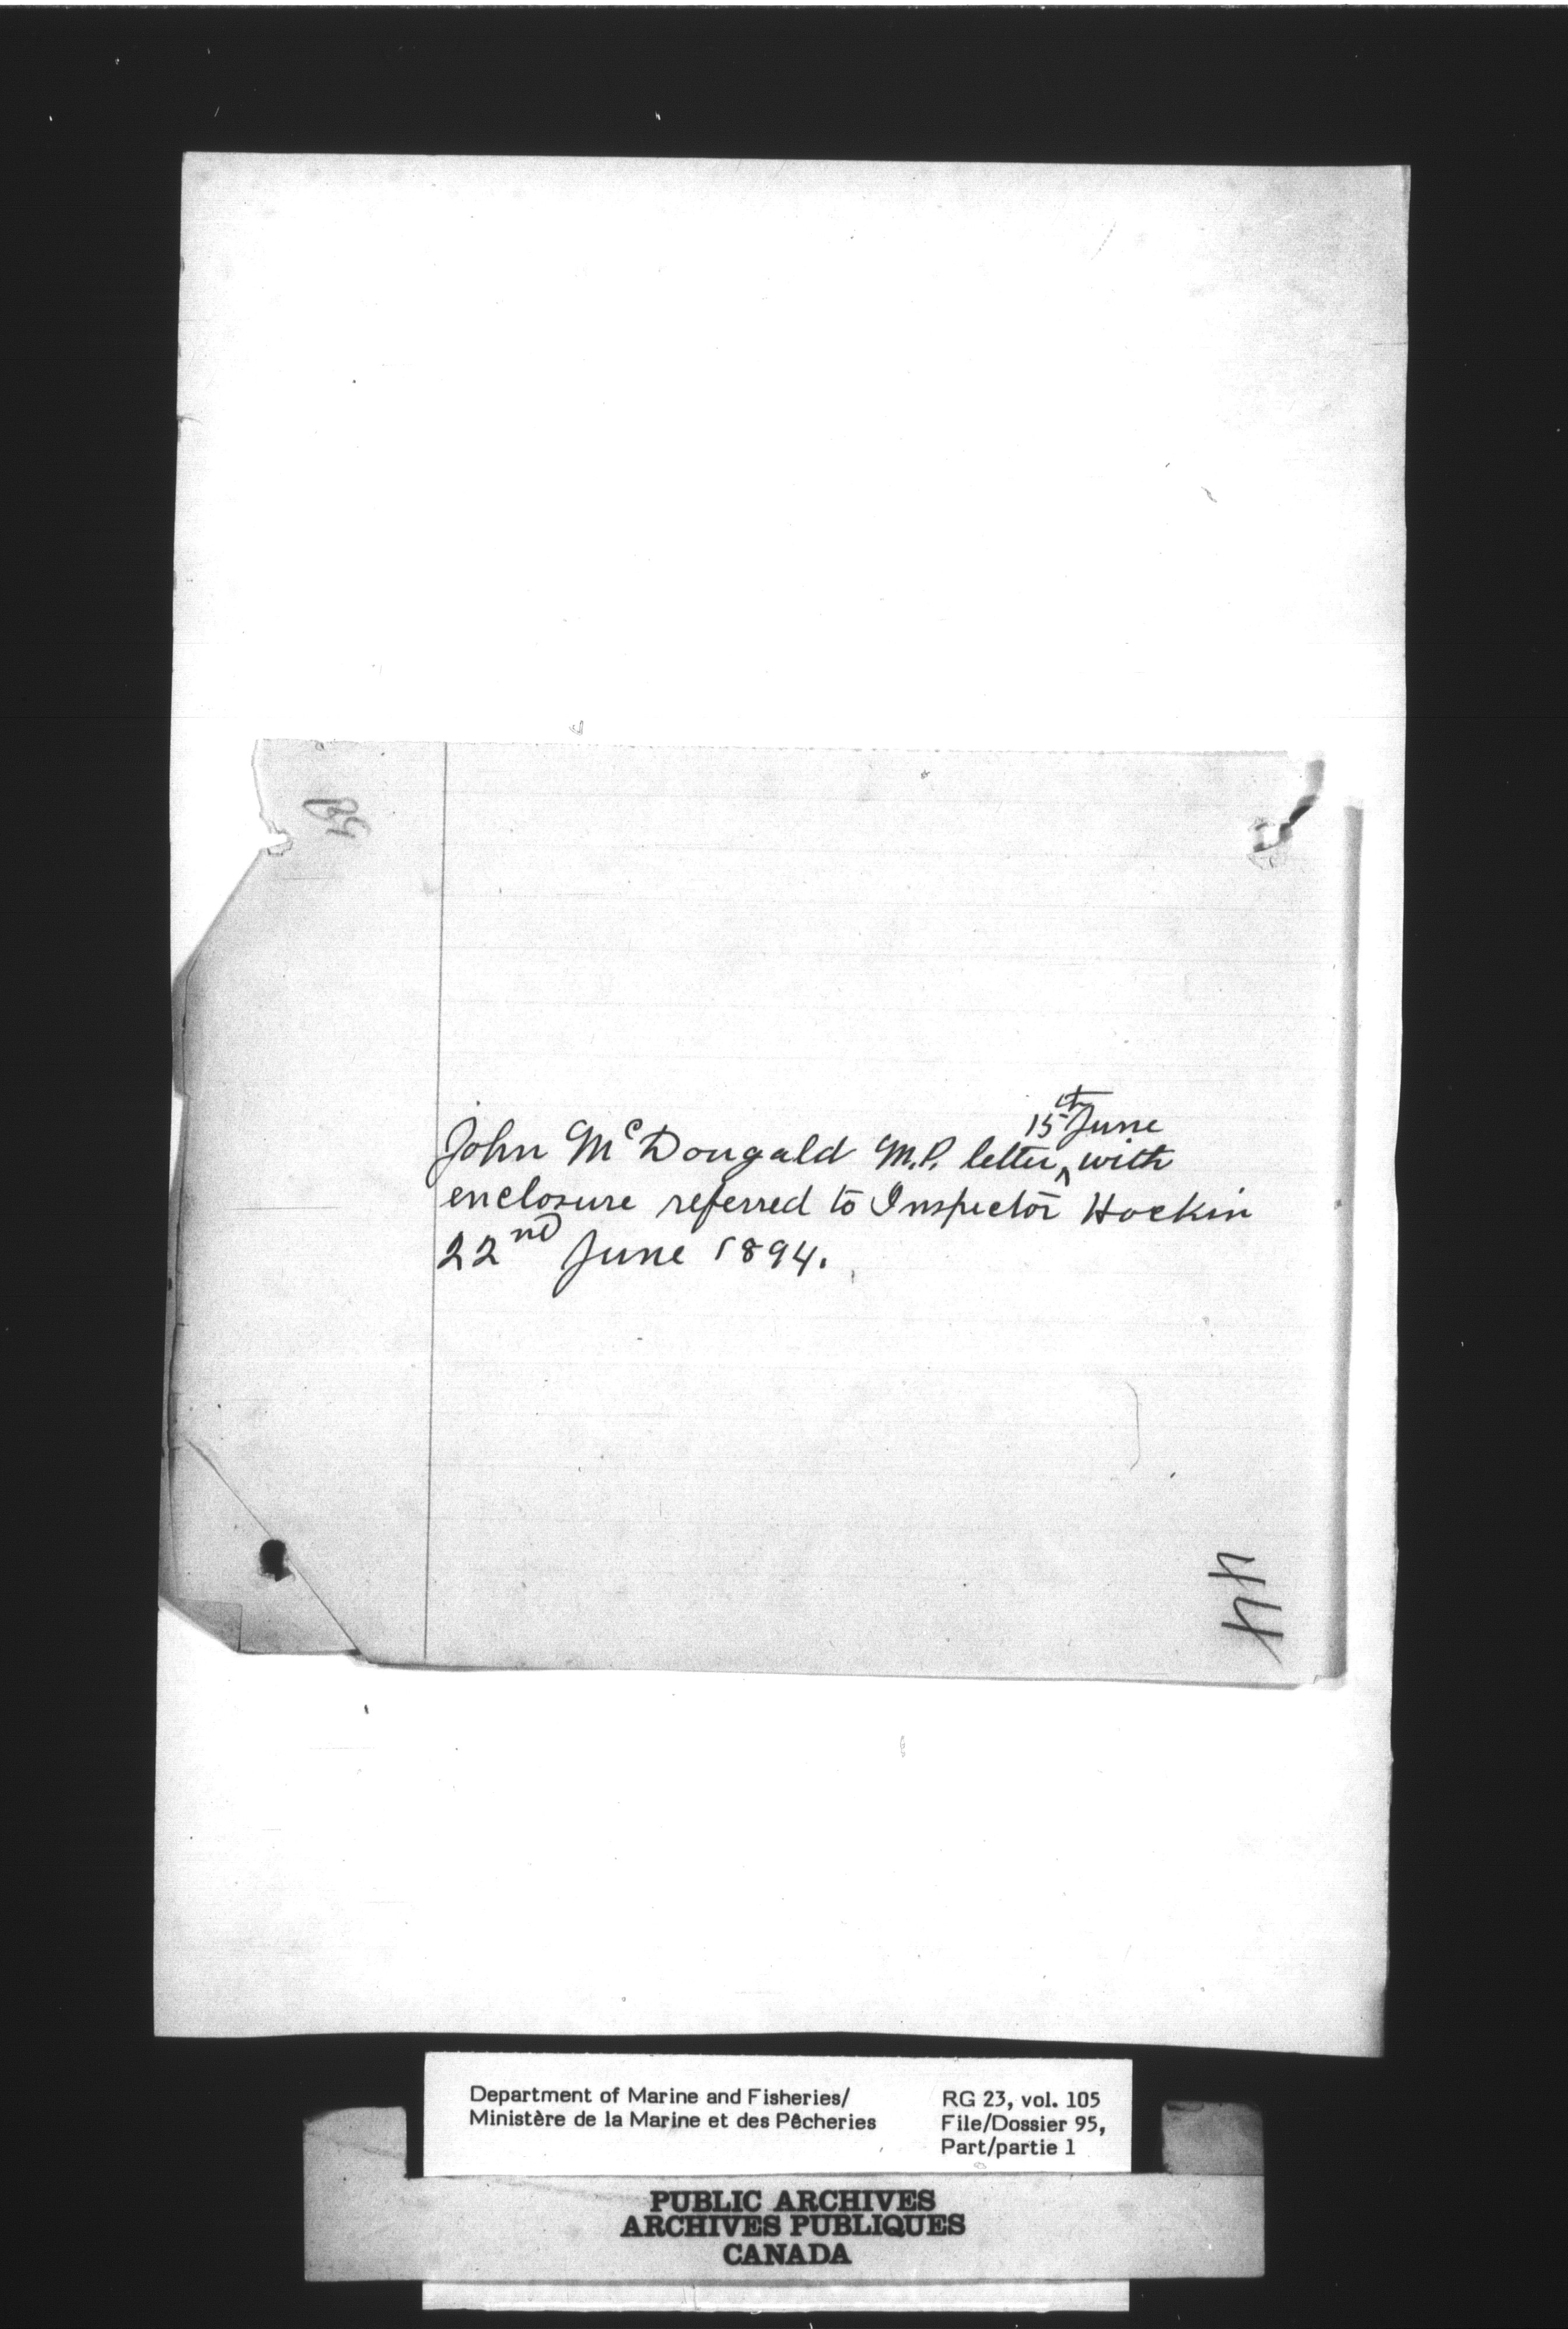 15th June
John McDougald M.P. letter ^ with
enclosure referred to Inspector Hockin
22nd June 1894.
44
Department of Marine and Fisheries/
Ministère de la Marine et des Pêcheries
RG 23, vol. 105
File/Dossier 95,
Part/partie 1
PUBLIC ARCHIVES
ARCHIVES PUBLIQUES
CANADA